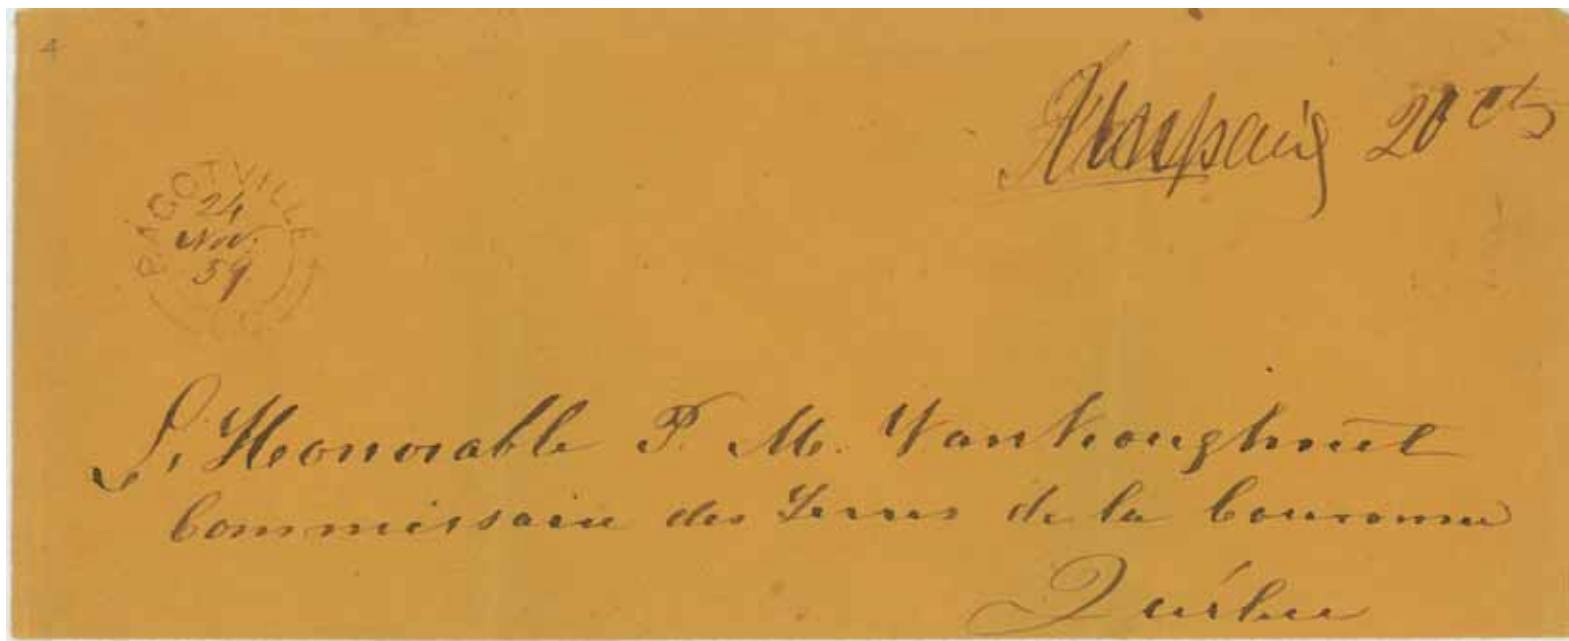 4
20 cts
BAGOTVILLE
24
Nov.
59
L'Honorable P. M. Vankoughnet
Commissaire des Terres de la Couronne
Québec